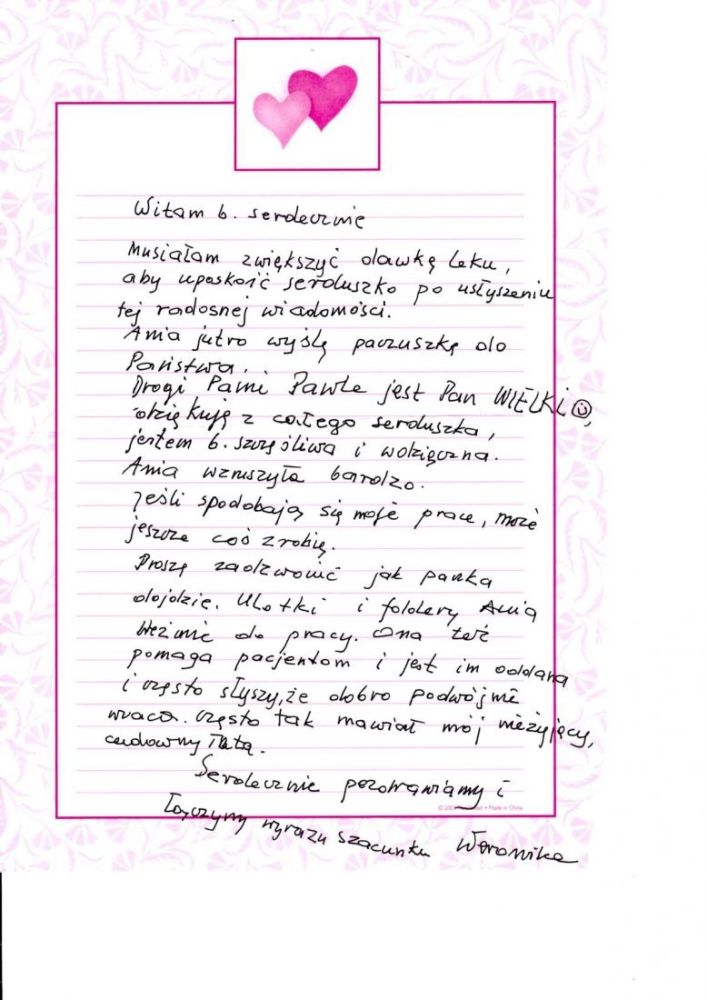 Witam b. serdecznie
Musiałam zwiększyć dawkę leku,
aby uposkoić serduszko po usłyszeniu
tej radosnej wiadomości.
Ania jutro wyślę paczuszkę do
Państwa.
Drogi Pami Pawle jest Pan WIELKI ☺,
dziękuję z całego serduszka,
jestem b. szczęśliwa i wdzięczna.
Ania wzruszyła bardzo.
Jeśli spodobają się moje prace, może
jeszcze coś zrobię.
Proszę zadzwonić jak paczka
dojdzie. Ulotki i foldery Ania
weźmie do pracy. Ona też
pomaga pacjentom i jest im oddana
i często słyszy, że dobro podwójnie
wraca. Często tak mawiał mój nieżyjący,
cudowny Tata.
Serdecznie pozdrawiamy i
łączymy wyrazy szacunku Weronika
Made in China